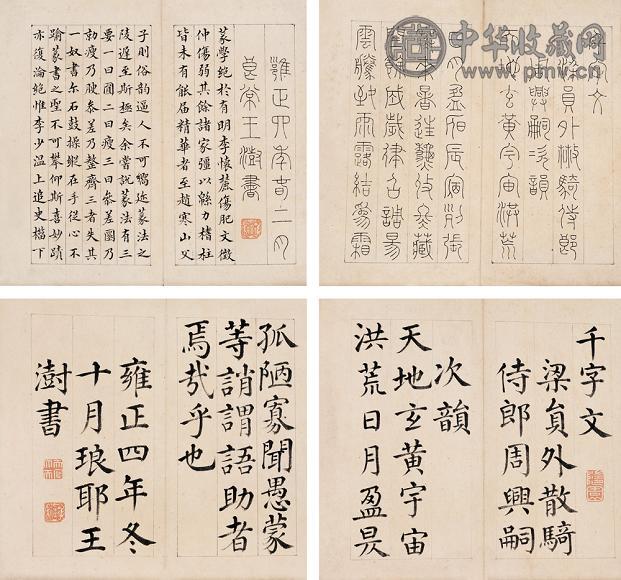 中华收藏网
千字文
梁員外散騎侍郎
周興嗣次韻
天地玄黃宇宙洪荒
日月盈昃辰宿列張
寒來暑往秋收冬藏
閏餘成歲律呂調陽
雲騰致雨露結為霜
雍正四年春二月
琅邪王澍書
篆學絕於有明李懷麓傷肥文徵
仲傷弱其餘諸家彊以緜力稽柱
皆未有能屆精華者至趙寒山父
子則俗韵逼人不可嚮邇篆法之
陵遲至斯極矣余嘗說篆法有三
要一曰圓二曰瘦三曰叅差圓乃
勁瘦乃腴叅差乃整齊三者失其
一奴書尔石鼓操縱在手從心不
踰篆書之聖不可攀仰斯喜妙蹟
亦復淪絕惟李少温上追史籀下
千字文
梁貟外散騎
侍郎周興嗣
次韻
天地玄黄宇宙
洪荒日月盈昃
孤陋寡聞愚蒙
等誚謂語助者
焉哉乎也
雍正四年冬
十月琅耶王
澍書